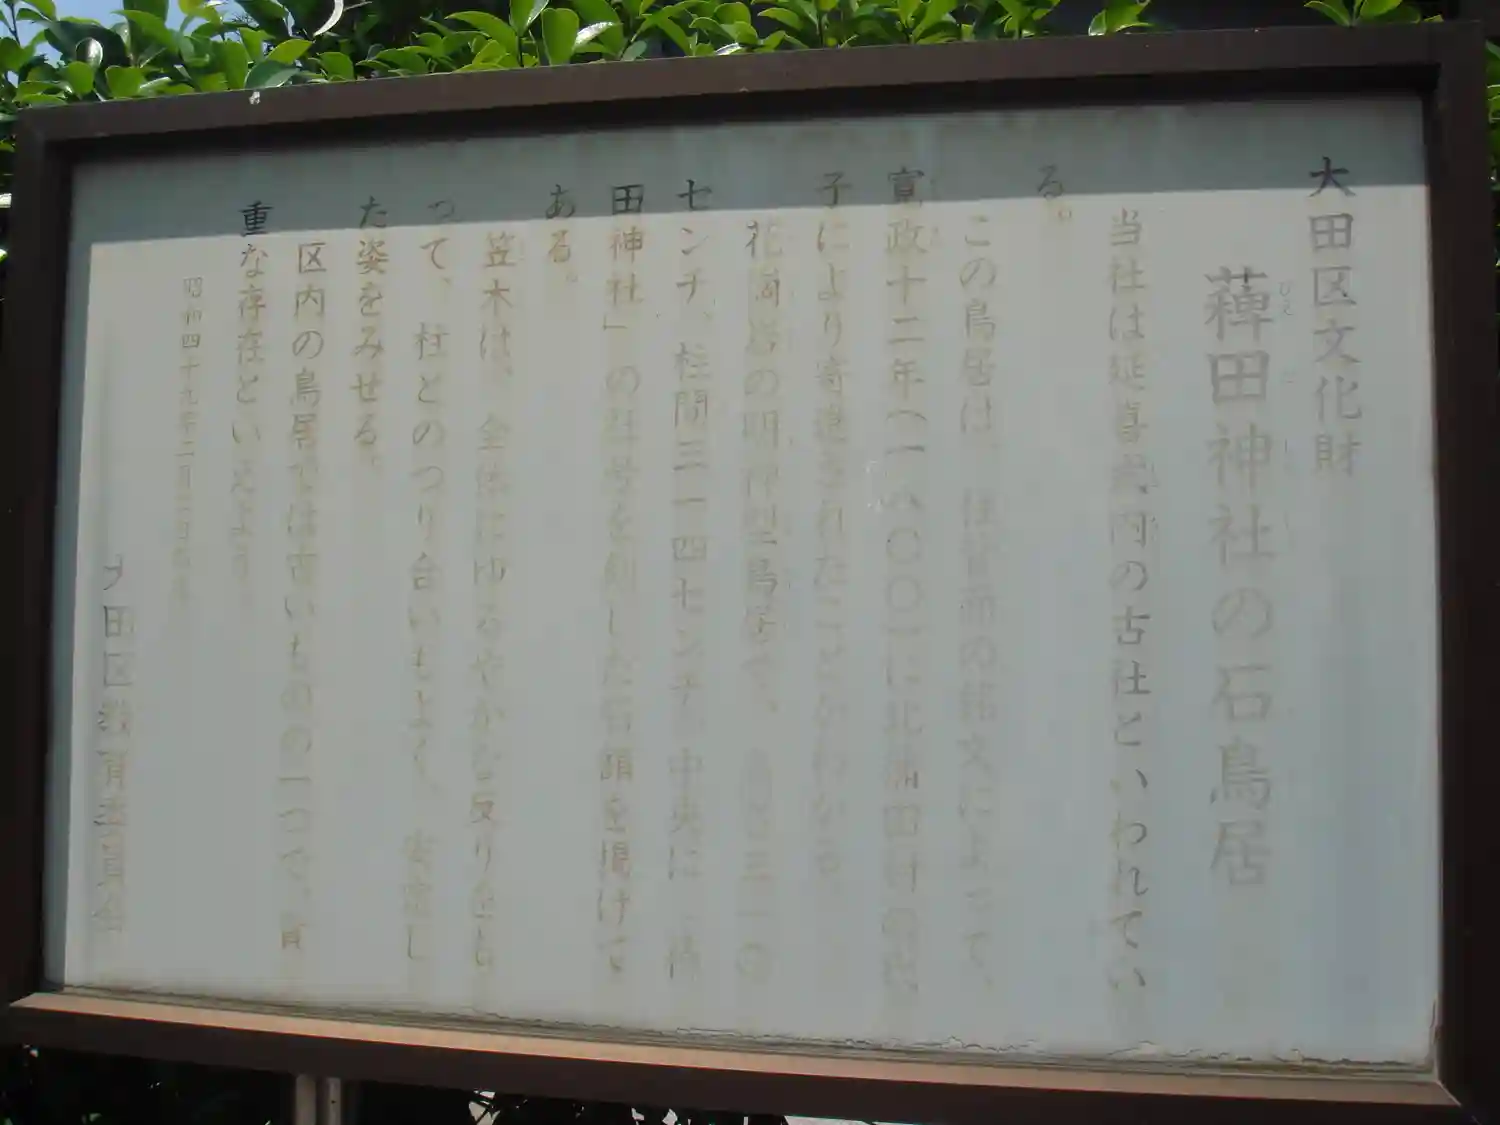 大田区文化財
薭田神社の石鳥居
当社は延喜式内の古社といわれてい
る。
この鳥居は、 の銘文によって、
寛政十二年(一八〇〇)に北蒲田村の氏
子により寄進されたことがわかる。
花崗岩の明神型鳥居で、高さ三一〇
センチ、柱間三一四センチ。中央に「薭
田神社」の社号を刻した石額を掲げて
ある。
笠木は、全体にゆるやかな反りをも
って、柱とのつり合いもよく、安定し
た姿をみせる。
区内の鳥居では古いものの一つで、貴
重な存在といえよう。
昭和四十九年二月
大田区教育委員会